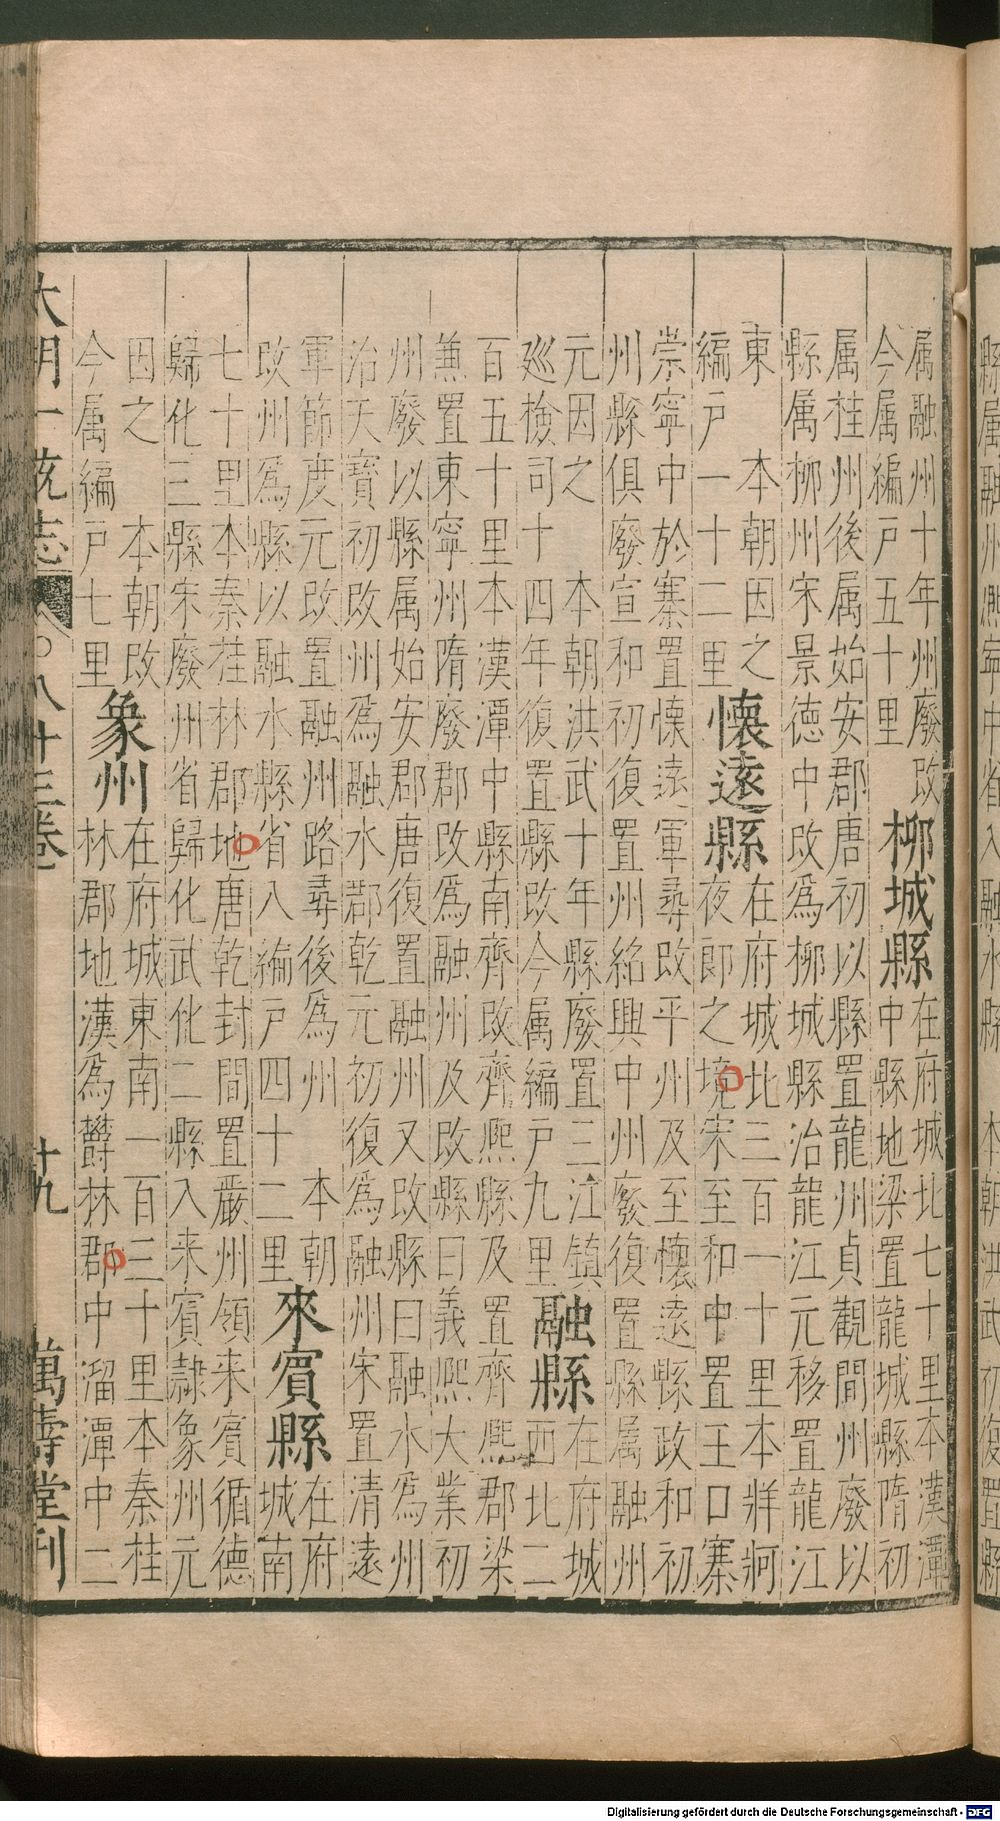 縣属融州熙寧中省入融水縣 本朝洪武初復置縣
属融州十年州廢改
今属編戶五十里
柳城縣
在府城北七十里本漢潭
中縣地梁置龍城縣隋初
属桂州後属始安郡唐初以縣置龍州貞觀間州廢以
縣属柳州宋景徳中改為柳城縣治龍江元移置龍江
東 本朝因之
編戶一十二里
懐遠縣
在府城北三百一十里本牂牁
夜郎之境宋至和中置王口寨
崇寧中於寨置懐遠軍尋改平州及至懐遠縣政和初
州縣俱廢宣和初復置州紹興中州廢復置縣属融州
元因之 本朝洪武十年縣廢置三江鎮
廵檢司十四年復置縣改今属編戶九里
融縣
在府城
西北二
百五十里本漢潭中縣南齊改齊熙縣及置齊熙郡梁
兼置東寧州隋廢郡改為融州及改縣曰義熙大業初
州廢以縣属始安郡唐復置融州又改縣曰融水為州
治天寳初改州為融水郡乾元初復為融州宋置清遠
軍節度元改置融州路尋後為州 本朝
改州為縣以融水縣省入編戶四十二里
來賓縣
在府
城南
七十里本秦桂林郡地唐乾封間置嚴州領来賓循德
歸化三縣宋廢州省歸化武化二縣入来賓隷象州元
因之 本朝改
今属編戶七里
象州
在府城東南一百三十里本秦桂
林郡地漢為欝林郡中溜潭中二
大明一統志 八十三卷 十九 萬壽堂刊
Digitalisierung gefördert durch die Deutsche Forschungsgemeinschaft - DFG